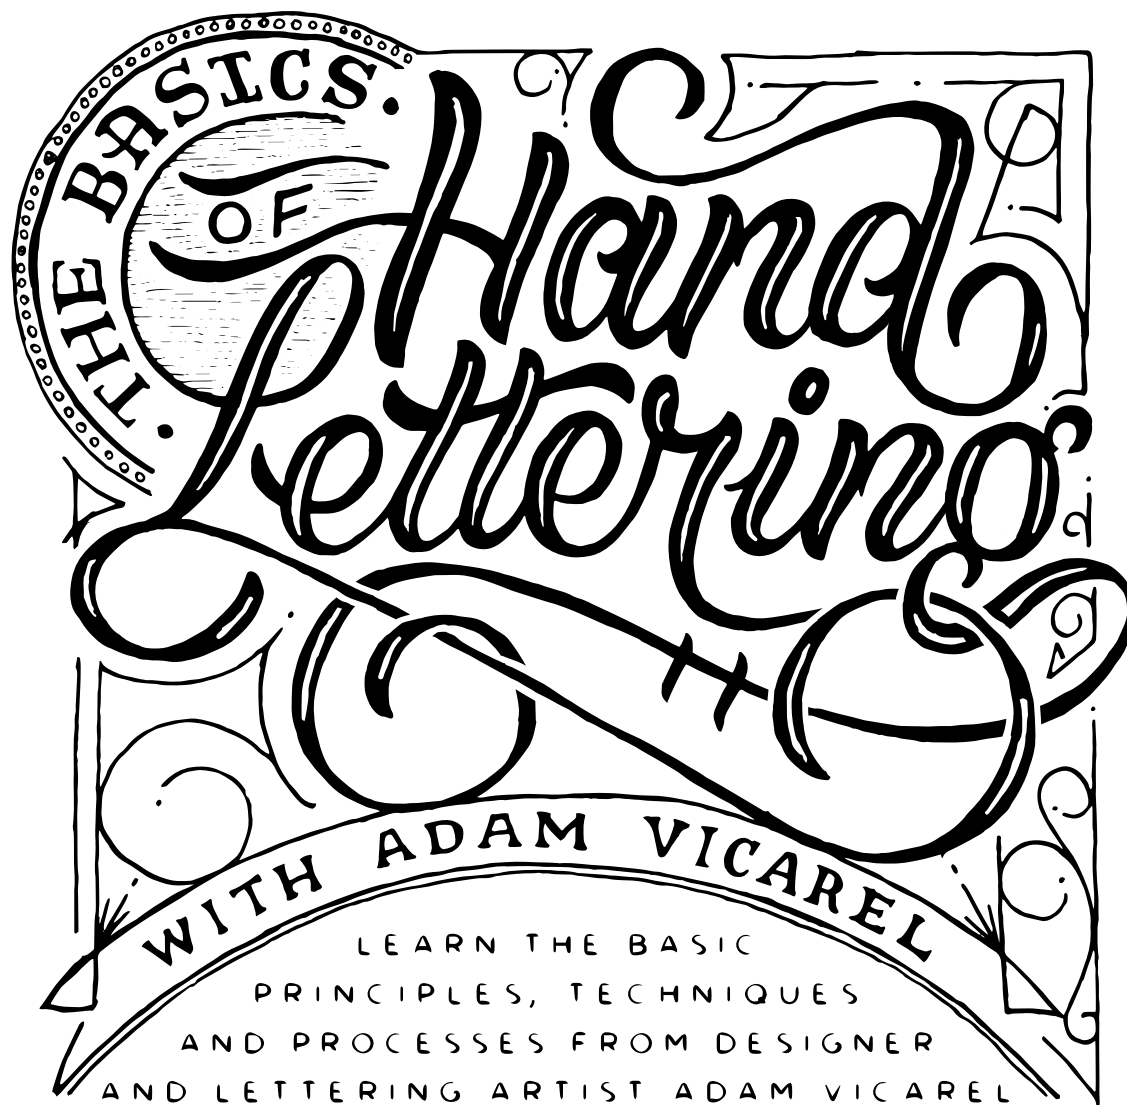 THE BASICS.
OF
Hand
Lettering
WITH ADAM VICAREL
LEARN THE BASIC
PRINCIPLES, TECHNIQUES
AND PROCESSES FROM DESIGNER
AND LETTERING ARTIST ADAM VICAREL